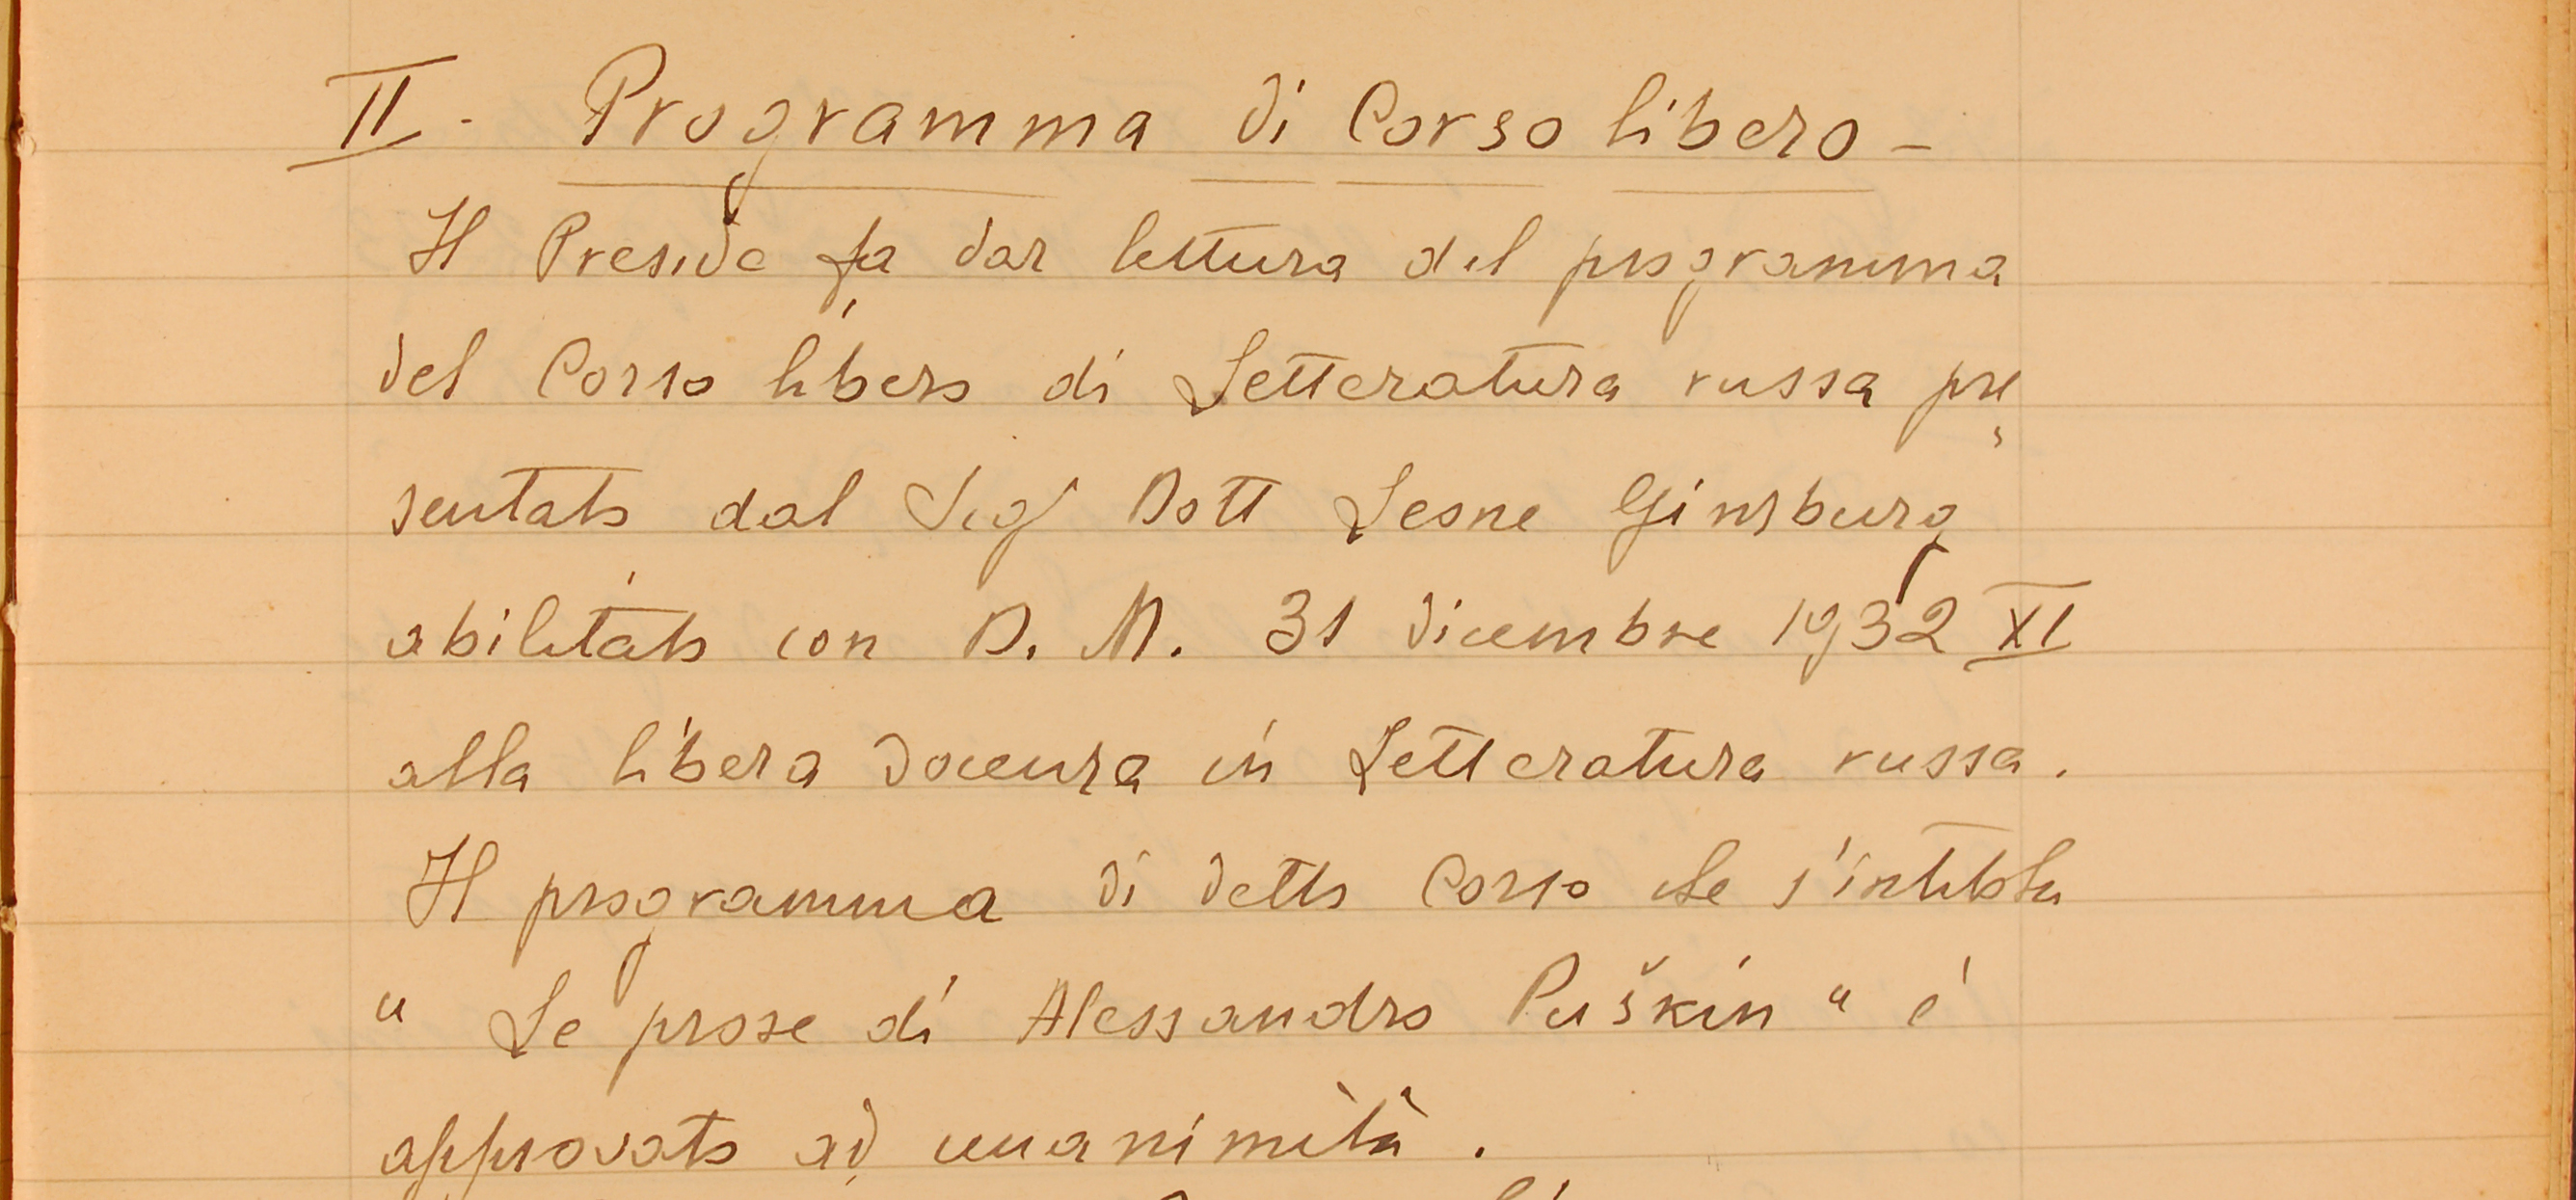 II. Programma di Corso libero –
Il Preside fa dar lettura del programma
del Corso libero di Letteratura russa pre
sentato dal Sig Dott Leone Ginzburg
abilitato con D. M. 31 dicembre 1932 XI
alla libera docenza in Letteratura russa.
Il programma di detto Corso che s'intitola
" Le prose di Alessandro Puškin " è
approvato ad unanimità.